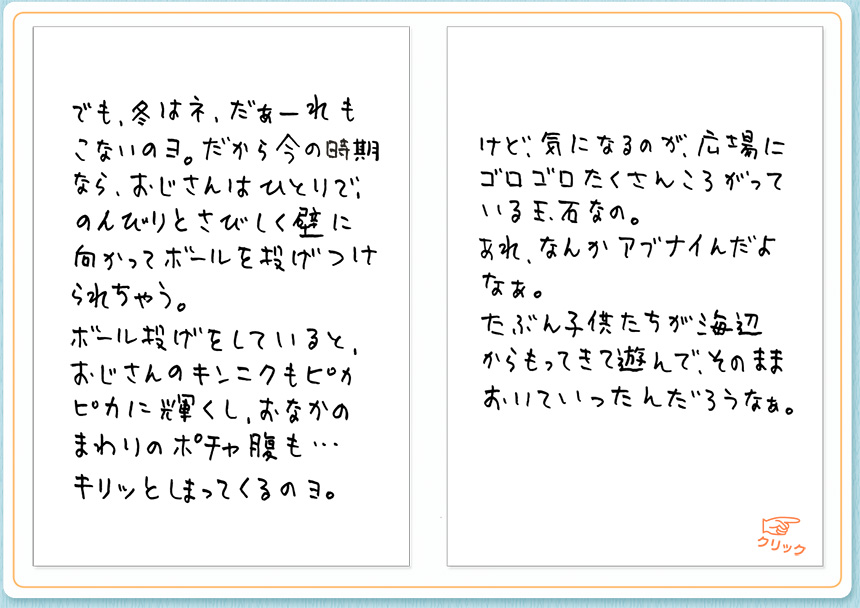 でも、冬はネ、だぁーれも
こないのヨ。だから今の時期
なら、おじさんはひとりで、
のんびりとさびしく壁に
向かってボールを投げつけ
られちゃう。
ボール投げをしていると、
おじさんのキンニクもピカ
ピカに輝くし、おなかの
まわりのポチャ腹も…
キリッとしまってくるのヨ。
けど、気になるのが、広場に
ゴロゴロたくさんころがって
いる玉石なの。
あれ、なんかアブナイんだよ
なぁ。
たぶん子供たちが海辺
からもってきて遊んで、そのまま
おいていったんだろうなぁ。
クリック